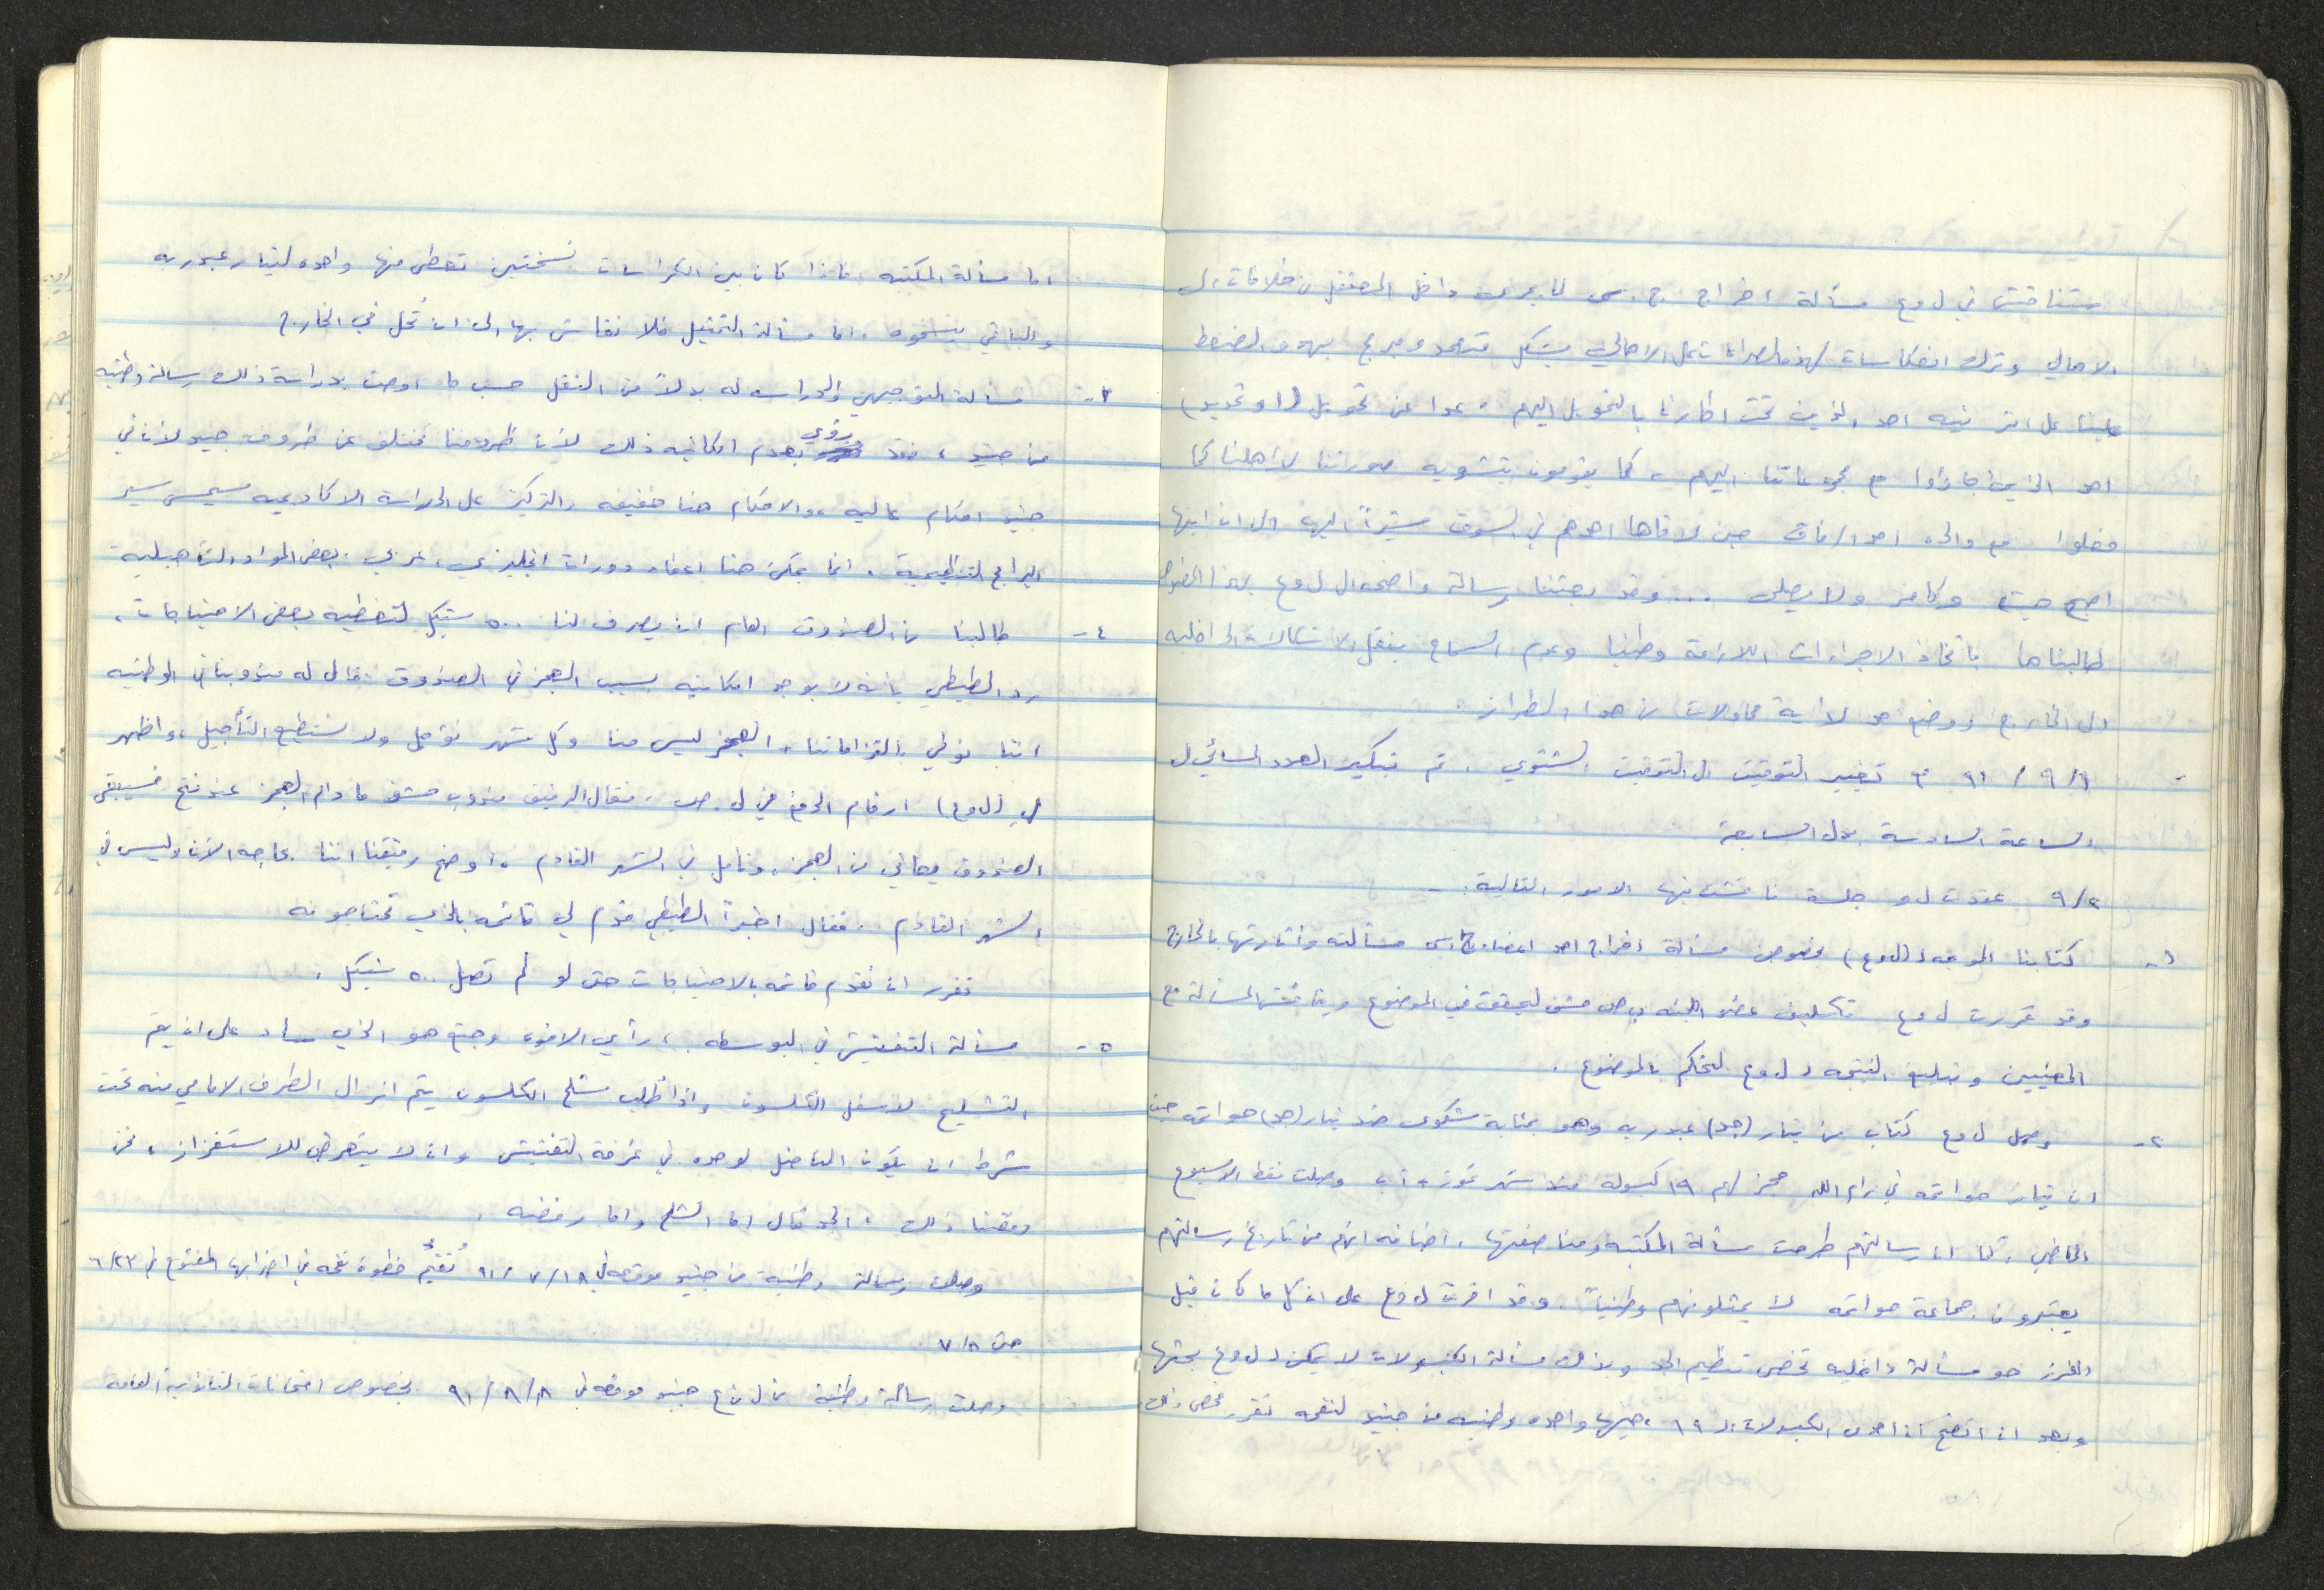 ستناقش في ل و ع مسألة اخراج ج.س لما يجري داخل المعتقل من خلافات، ل
الاهالي وترك انعكاسات لهذه الصراعات على الاهالي بشكل متعمد ومبرمج بهدف الضغط
علينا على اثر نيه احد الذين تحت اطارنا بالتحويل اليهم، عدا عن تحويل (او تحديد)
احد الذين جاؤوا مع مجموعاتنا اليهم، كما يقومون بتشويه صورتنا لاهلنا كما
فعلوا مع والدة احد الرفاق حين لاقاها احدهم في السوق مشيراً اليها الى ان ابنها
اصبح وكافر ولا يصلي ... وقد بعثنا رسالة واضحه ال ل و ع بهذا الخصوص
طالبناها باتخاذ الاجراءات اللازمة وطنيا وعدم السماح بنقل الاشكالات الداخليه
الى الخارج ووضع حد لاية محاولات من هذا الطراز.
- ٩١/٩/١ تم تغيير التوقيت الى التوقيت الشتوي. تم تبكير العدد المسائي ل
الساعة السادسة بدل السابعة
٩/٢ عقدت ل و جلسة ناقشت فيها الامور التالية:-
١- كتابنا الموجه (ل و ع) بخصوص مسألة اخراج احد اعضاء ج.س مسألته واثارتها بالخارج
وقد قررت ل و ع تكليف عضو اللجنه ليحقق في الموضوع ويناقش المسألة مع
المعنيين وتبليغ النتيجه ل و ع لتحكم بالموضوع.
٢- وصل ل و ع كتاب من تيار (جد) عبدربه وهو بمثابة شكوى ضد تيار (جد) حواتمه حيث
ان تيار حواتمه في رام الله حجز لهم ١٩ كبسوله منذ شهر تموز، آب وصلت فقط الاسبوع
الماضي، كما ان رسالتهم طرحت مسألة المكتبه ومناصفتها، اضافه انهم من تاريخ رسالتهم
يعتبروا ان جماعة حواتمه لا يمثلونهم وطنياً. وقد اقرت ل و ع على ان كل ما كان قبل
الفرز هو مسألة داخليه تخص تنظيم الجد وبذلك مسألة الكبسولات لا يمكن ل و ع بحثها
وبعد ان اتضح ان احدى الكبسولات الـ ١٩ وطنيه من جنيد لنفحه تقرر فحص ذلك
اما مسألة المكتبه، فاذا كان بين الكراسات نسختين تعطى منها واحده لتيار عبدربه
والباقي ينسخوه، اما مسألة التمثيل فلا نقاش بها الى ان تُحل في الخارج
٣- مسألة التوجيهي والدراسه له بدلاً من النقل حسب ما اوصت بدراسة ذلك رسالة وطنيه
من جنيد، فقد رؤي بعدم امكانيه ذلك لأن ظروفنا تختلف عن ظروف جنيد لأن في
جنيد احكام عاليه، والاحكام هنا خفيفه والتركيز على الدراسة الاكاديميه سيمس سير
البرامج التنظيمية، انما يمكن هنا اعطاء دورات انجليزي، عربي، بعض المواد التأهيلية
٤- طالبنا من الصندوق العام ان يصرف لنا ٥٠٠ شيكل لتغطيه بعض الاحتياجات،
رد الطيطي بأنه لا يوجد امكانيه بسبب العجز في الصندوق، فقال له مندوبنا في الوطنيه
اننا نوفي بالتزاماتنا، العجز ليس منا وكل شهر نؤجل ولا نستطيع التأجيل، واظهر
(ل و ع) ارقام الدفع في ل. ص، فقال الرفيق مندوب ما دام العجز عند فتح فسيبقى
الصندوق يعاني من العجز، ونأمل في الشهر القادم، اوضح رفيقنا اننا بحاجه الآن وليس في
الشهر القادم. فقال اخيراً الطيطي قدم لي قائمه بالذي تحتاجونه
تقرر ان نقدم قائمه بالاحتياجات حتى لو لم تصل ٥٠٠ شيكل.
٥- مسألة التفتيش في البوسطه، رأي الاخوه وجبع هو الذي ساد على ان يتم
التشليح لاسفل الكلسون واذا طُلب شلح الكلسون يتم انزال الطرف الامامي منه تحت
شرط ان يكون المناضل لوحده في غرفة التفتيش وان لا يتعرض للاستفزاز، نحن
رفضنا ذلك، الجد قال اما الشلح واما رفضه.
وصلت رسالة وطنية من جنيد موقعه في ٩١/٧/١٨ تُقيّم خطوة نفحه في اضرابها المفتوح في ٦/٢٣
حتى ٧/٨
وصلت رسالة وطنية من ل و ع جنيد موقعه في ٩١/٨/٨ بخصوص امتحانات الثانوية العامه